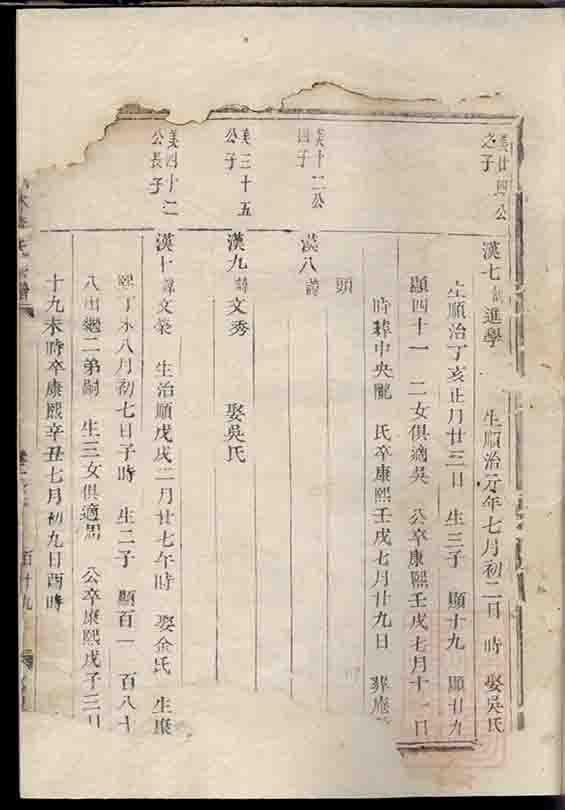 美廿四公
之子
漢七諱進學 生順治元年七月初二日 時 娶吳氏
生順治丁亥正月廿三日 生三子 顯十九 顯廿九
顯四十一 二女俱適吳 公卒康熙壬戌七月十一日
時葬中央隴 氏卒康熙壬戌七月廿九日 葬應
頭
美十二公
四子
漢八諱
美三十五
公子
漢九諱文秀 娶吳氏
美四十二
公長子
漢十諱文榮 生治順戊戌二月廿七午時 娶金氏 生康
熙丁未八月初七日子時 生二子 顯百一 百八十
八出繼二弟嗣 生三女俱適周 公卒康熙戊子三月
十九未時卒康熙辛丑七月初九日酉時
百廿九